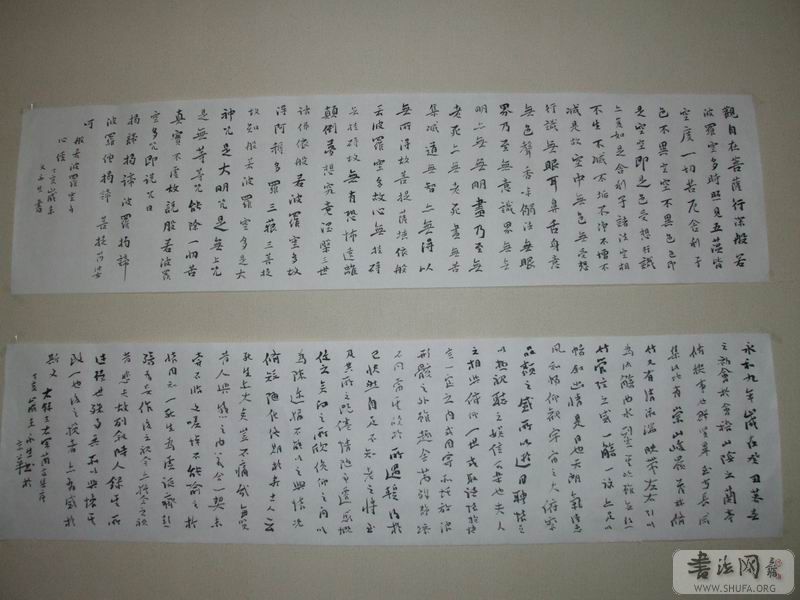 觀自在菩薩行深般若
波羅蜜多時照見五蘊皆
空度一切苦厄舍利子
色不異空空不異色色即
是空空即是色受想行識
亦復如是舍利子諸法空相
不生不滅不垢不淨不增不
減是故空中無色無受想
行識無眼耳鼻舌身意
無色聲香味觸法無眼
界乃至無意識界無無
明亦無無明盡乃至無
老死亦無老死盡無苦
集滅道無智亦無得以
無所得故菩提薩埵依般
若波羅蜜多故心無挂礙
無挂礙故無有恐怖遠離
顛倒夢想究竟涅槃三世
諸佛依般若波羅蜜多故
得阿耨多羅三藐三菩提
故知般若波羅蜜多是大
神咒是大明咒是無上咒
是無等等咒能除一切苦
真實不虛故說般若波羅
蜜多咒即說咒曰
揭諦揭諦波羅揭諦
波羅僧揭諦菩提薩婆
訶
般若波羅蜜多
心經 丁亥歲末
書
永和九年歲在癸丑暮春
之初會於會稽山陰之蘭亭
修禊事也群賢畢至少長咸
集此地有崇山峻嶺茂林修
竹又有清流激湍映帶左右引以
為流觴曲水列坐其次雖無絲
竹管弦之盛一觴一詠亦足以
暢敘幽情是日也天朗氣清惠
風和暢仰觀宇宙之大俯察
品類之盛所以遊目騁懷足
以極視聽之娛信可樂也夫人
之相與俯仰一世或取諸懷抱悟
言一室之內或因寄所託放浪
形骸之外雖趣舍萬殊靜躁
不同當其欣於所遇暫得於
己快然自足不知老之將至
及其所之既倦情隨事遷感慨
係之矣向之所欣俛仰之間以
為陳迹猶不能不以之興懷況
修短隨化終期於盡古人云
死生亦大矣豈不痛哉每覽
昔人興感之由若合一契未
嘗不臨文嗟悼不能喻之於
懷固知一死生為虛誕齊彭
殤為妄作後之視今亦猶今之視
昔悲夫故列敘時人錄其所
述雖世殊事異所以興懷其
致一也後之覽者亦有感於
斯文
丁亥歲
書法网
WWW.SHUFA.ORG